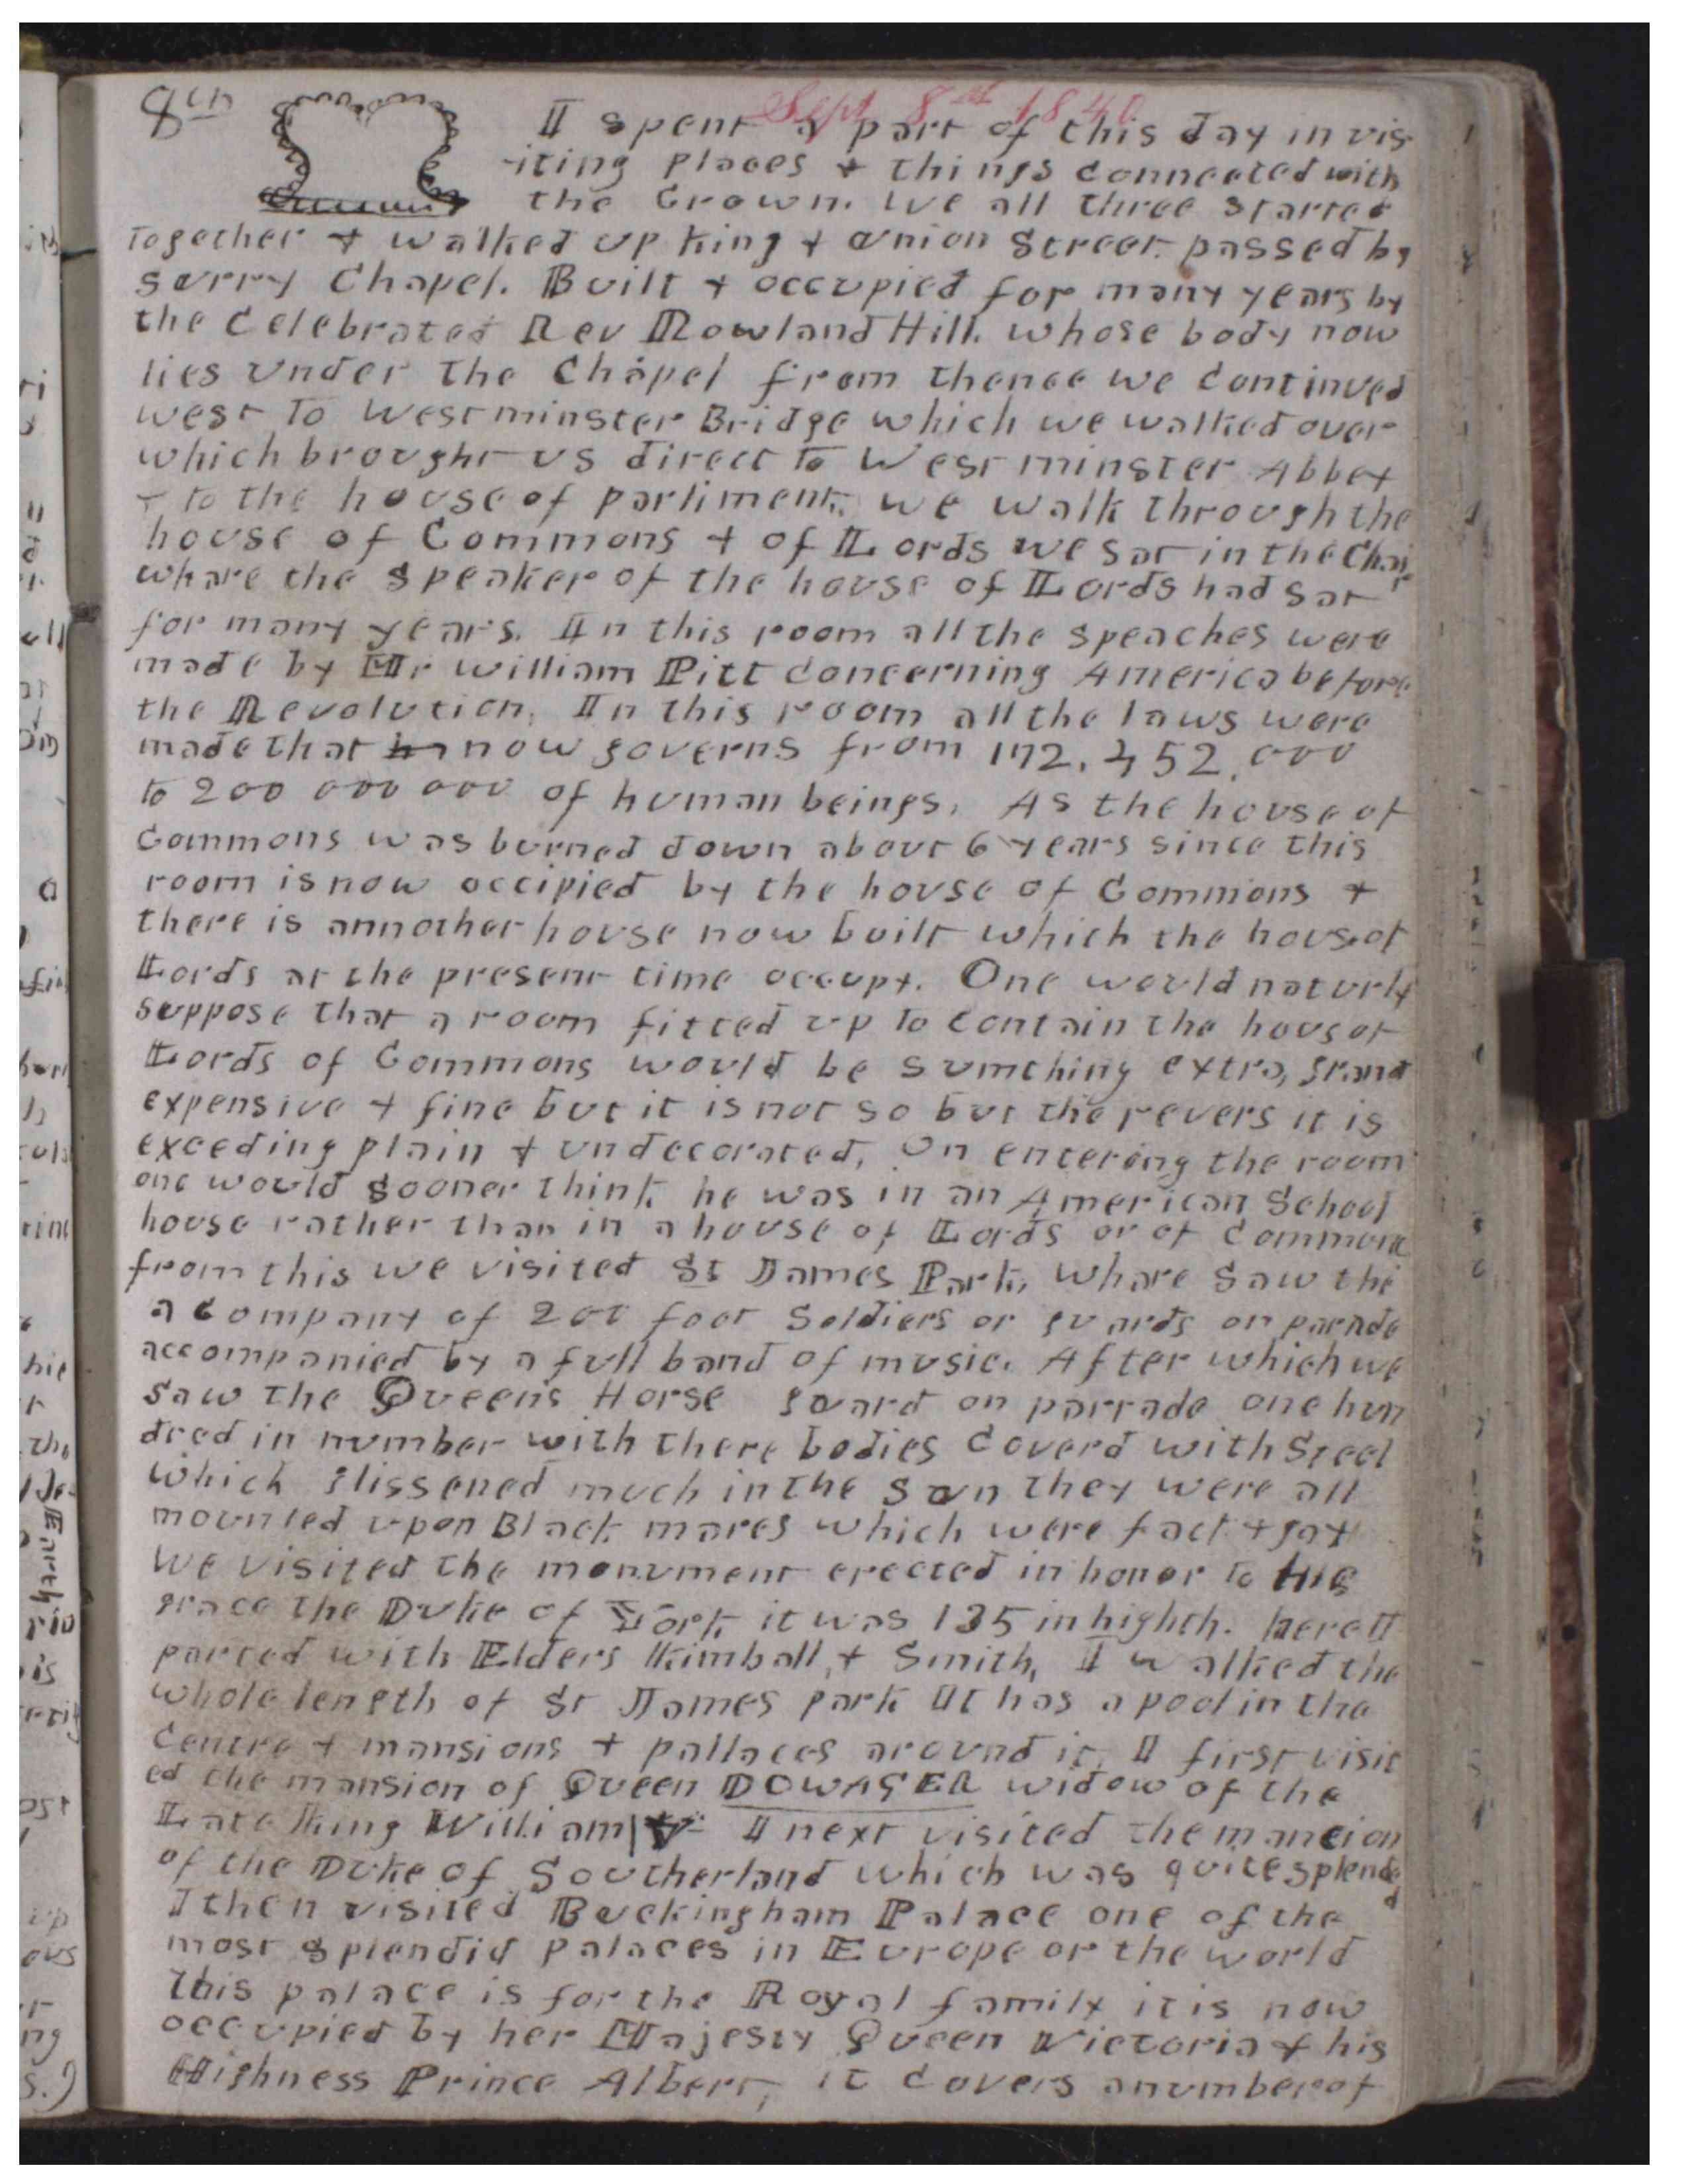 Sept 8th 1840
8th I spent a part of this day in vis-
-iting places + things connected with
the Crown. We all three started
together + walked up King + Union Street. passed by
Surry Chapel. Built + occupied for many years by
the Celebrated Rev Rowland Hill. whose body now
lies under the Chapel from thence we continued
west to Westminster Bridge which we walked over
which brought us direct to Westminster Abbey
+ to the house of parliment. we walk through the
house of Commons + of Lords we sat in the Chair
whare the speaker of the house of Lords had sat
for many years. In this room all the speaches were
made by Mr William Pitt concerning America before
the Revolution. In this room all the laws were
made that now governs from 172,452,000
to 200 000 000 of human beings. As the house of
Commons was burned down about 6 years since this
room is now occipied by the house of Commons +
there is annother house now built which the hous of
Lords at the present time occupy. One would naturly
suppose that a room fitted up to contain the hous of
Lords of Commons would be sumthing extra, grand
expensive + fine but it is not so but the revers it is
exceeding plain + undecorated. On entering the room
one would sooner think he was in an American School
house rather than in a house of Lords or of Commons
from this we visited St James Park, whare saw the
a company of 200 foot Soldiers or guards on parade
accompanied by a full band of music. After which we
saw the Queens Horse guard on parrade one hun
dred in number with there bodies coverd with Steel
which glissened much in the Sun they were all
mounted upon Black mares which were fact + gay
We visited the monument erected in honor to His
grace the Duke of York it was 135 in highth. here I
parted with Elders Kimball, + Smith, I walked the
whole length of St James park It has a pool in the
Centre + mansions + pallaces around it, I first visit
ed the mansion of Queen DOWAGER widow of the
Late King William IV I next visited the mancion
of the Duke of Southerland which was quite splended
I then visited Buckingham Palace one of the
most splendid palaces in Europe or the world
this palace is for the Royal family it is now
occupied by her Majesty Queen Victoria + his
Highness Prince Albert, it covers a number of